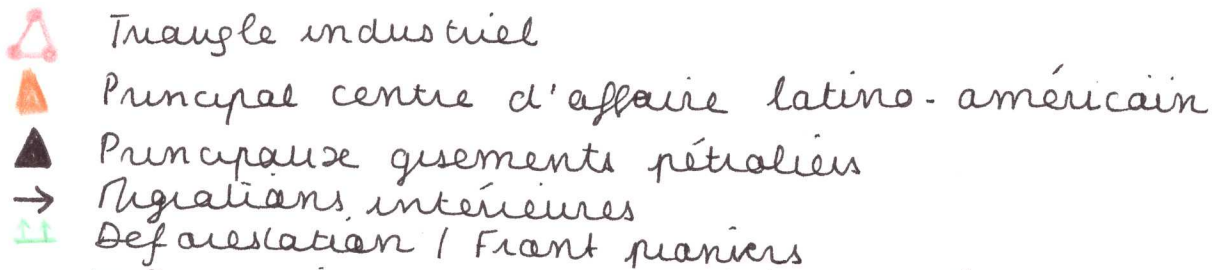 Triangle industriel
Principal centre d'affaire latino-américain
Principaux gisements pétroliers
Migrations intérieures
Deforestation / Front pioniers